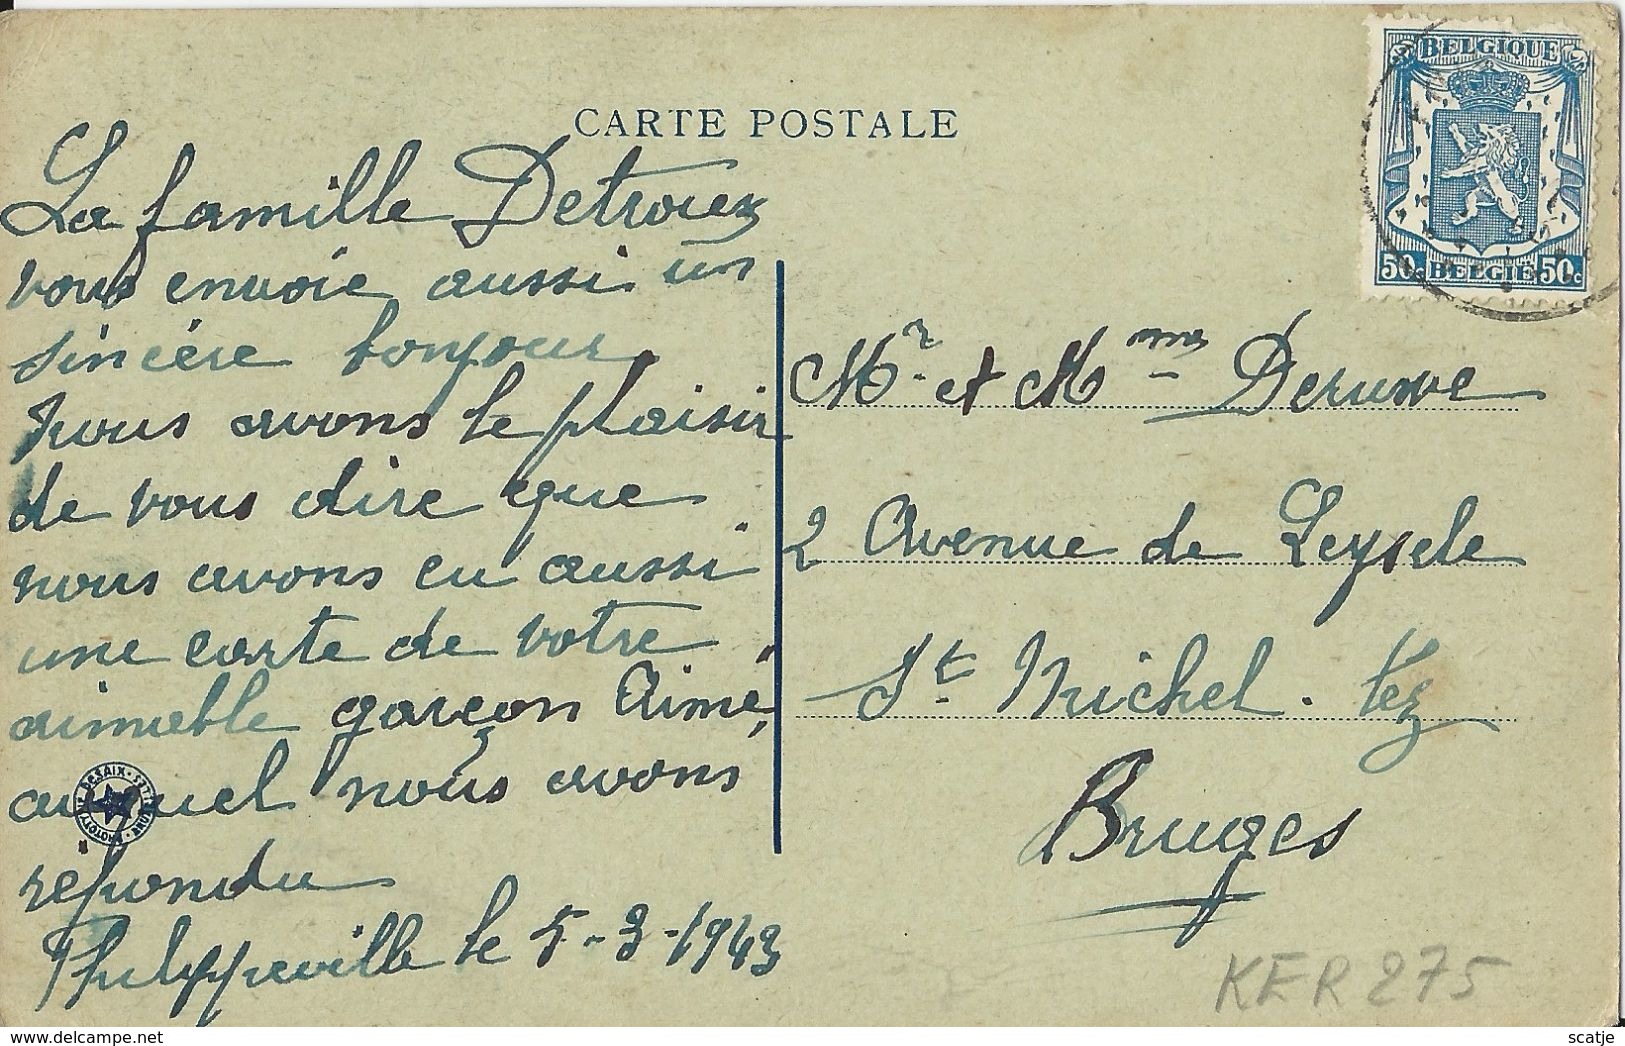 CARTE POSTALE
La famille Detrouez
vous envoie aussi un
sincère bonjour
nous avons le plaisir
de vous dire que
nous avons eu aussi
une carte de votre
aimable garçon Aimé,
auquel nous avons
répondu
Philippeville le 5-3-1943
BELGIQUE
50c BELGIË 50c
Mr. et Mme Deruwe
2 Avenue de Leysele
St. Michel. lez
Bruges
KER 275
delcampe.net
scatje